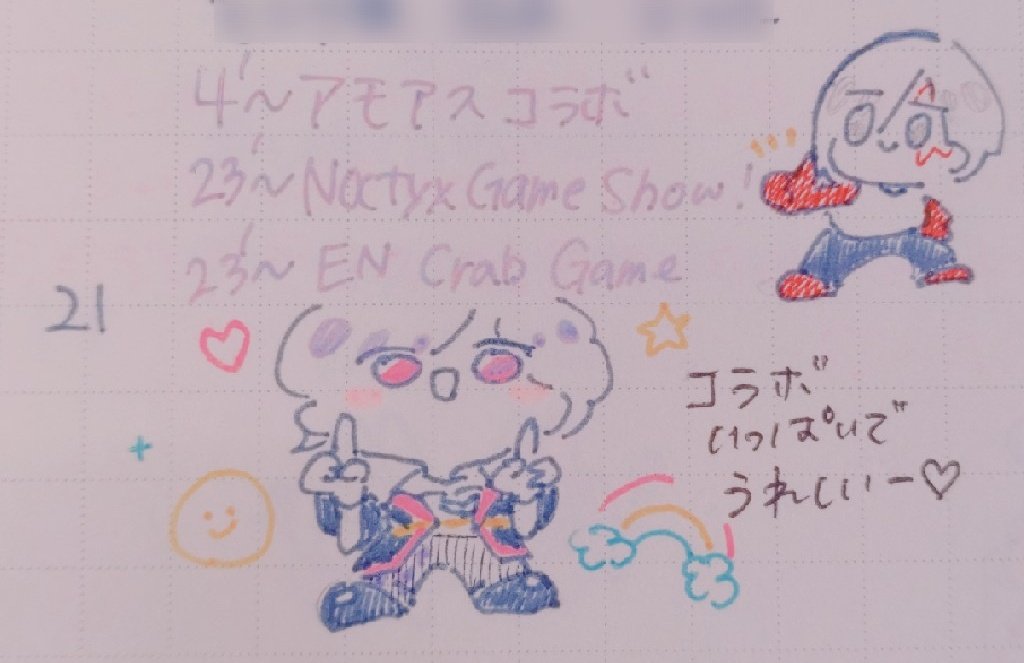 4'〜アモアスコラボ
23'〜Noctyx Game Show!
23'〜EN Crab Game
21
コラボ
いっぱいで
うれしいー♡